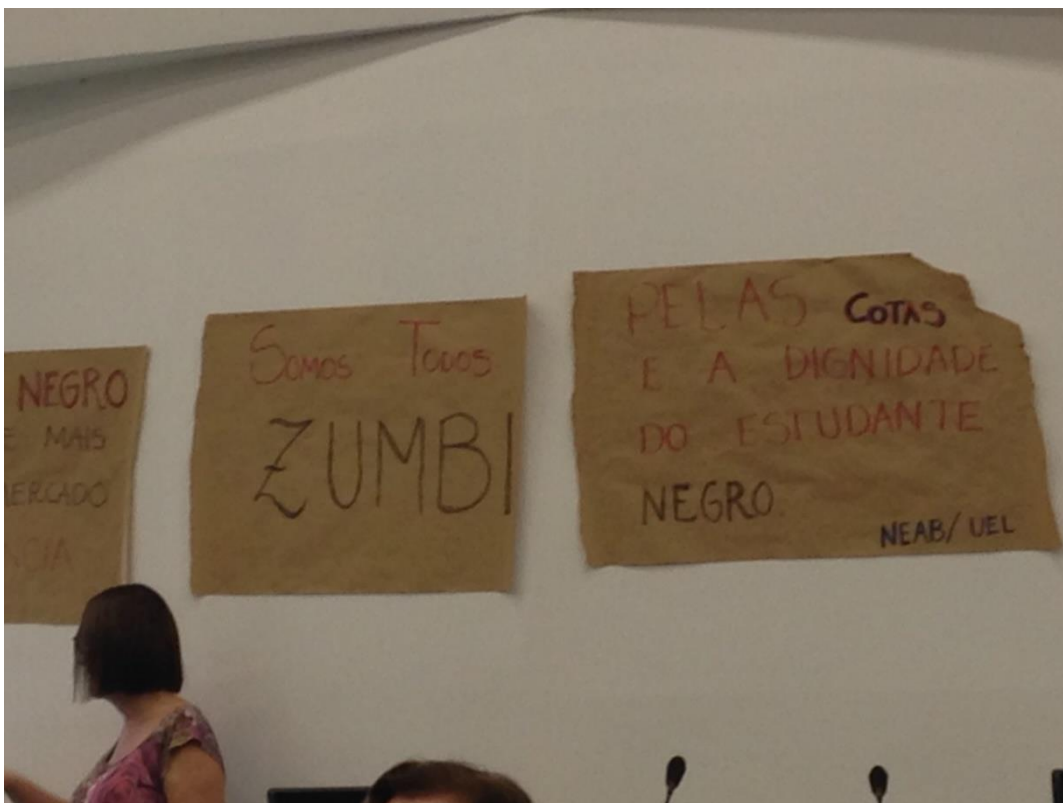 NEGRO
E MAIS
MERCADO
NCIA
Somos Todos
ZUMBI
PELAS COTAS
E A DIGNIDADE
DO ESTUDANTE
NEGRO
NEAB/UEL